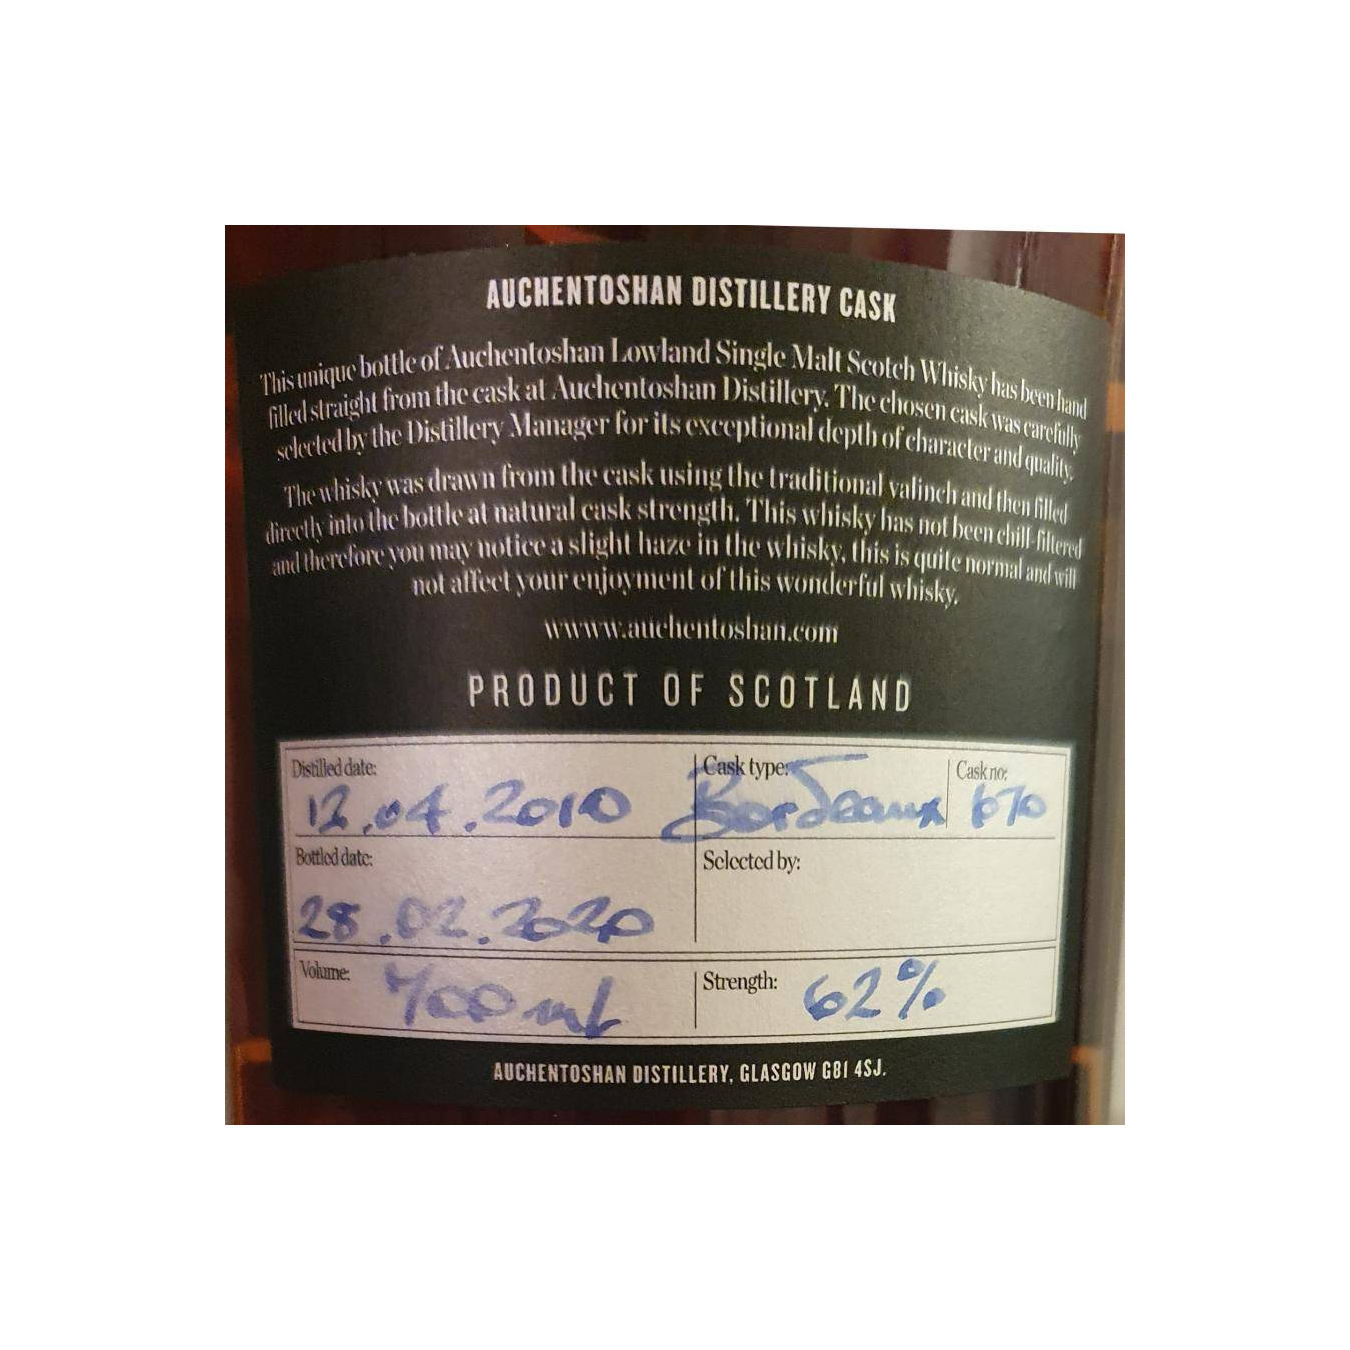 AUCHENTOSHAN DISTILLERY CASK
This unique bottle of Auchentoshan Lowland Single Malt Scotch Whisky has been hand
filled straight from the cask at Auchentoshan Distillery. The chosen cask was carefully
selected by the Distillery Manager for its exceptional depth of character and quality.
The whisky was drawn from the cask using the traditional valinch and then filled
directly into the bottle at natural cask strength. This whisky has not been chill-filtered
and therefore you may notice a slight haze in the whisky, this is quite normal and will
not affect your enjoyment of this wonderful whisky.
www.auchentoshan.com
PRODUCT OF SCOTLAND
Distilled date: Cask type: Cask no:
12.04.2010 Bordeaux 670
Bottled date: Selected by:
28.02.2020
Volume: 700ml Strength: 62%
AUCHENTOSHAN DISTILLERY, GLASGOW G81 4SJ.